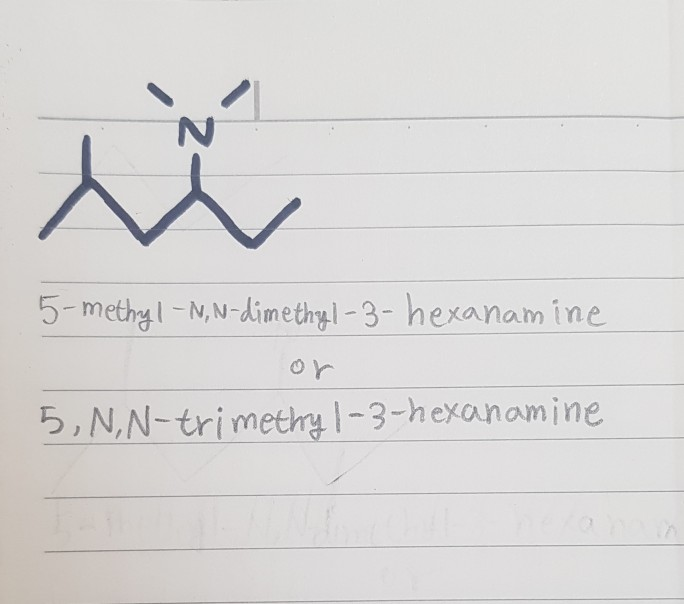 N
5-methyl-N,N-dimethyl-3-hexanamine
or
5,N,N-trimethyl-3-hexanamine